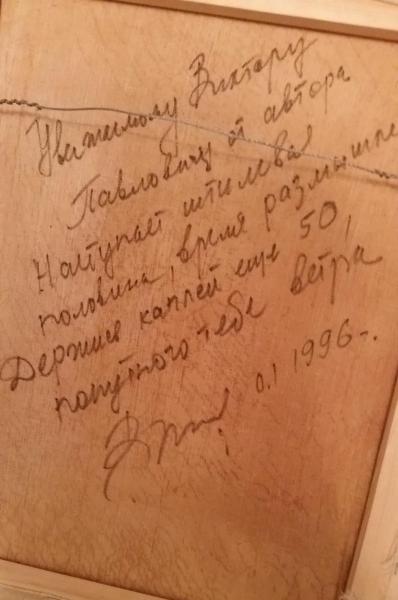 Уважаемому Виктору
Павловичу от автора
Наступает штилевая
половина, время размышле
Держись каплей еще 50,
попутного тебе ветра
0.1 1996г.